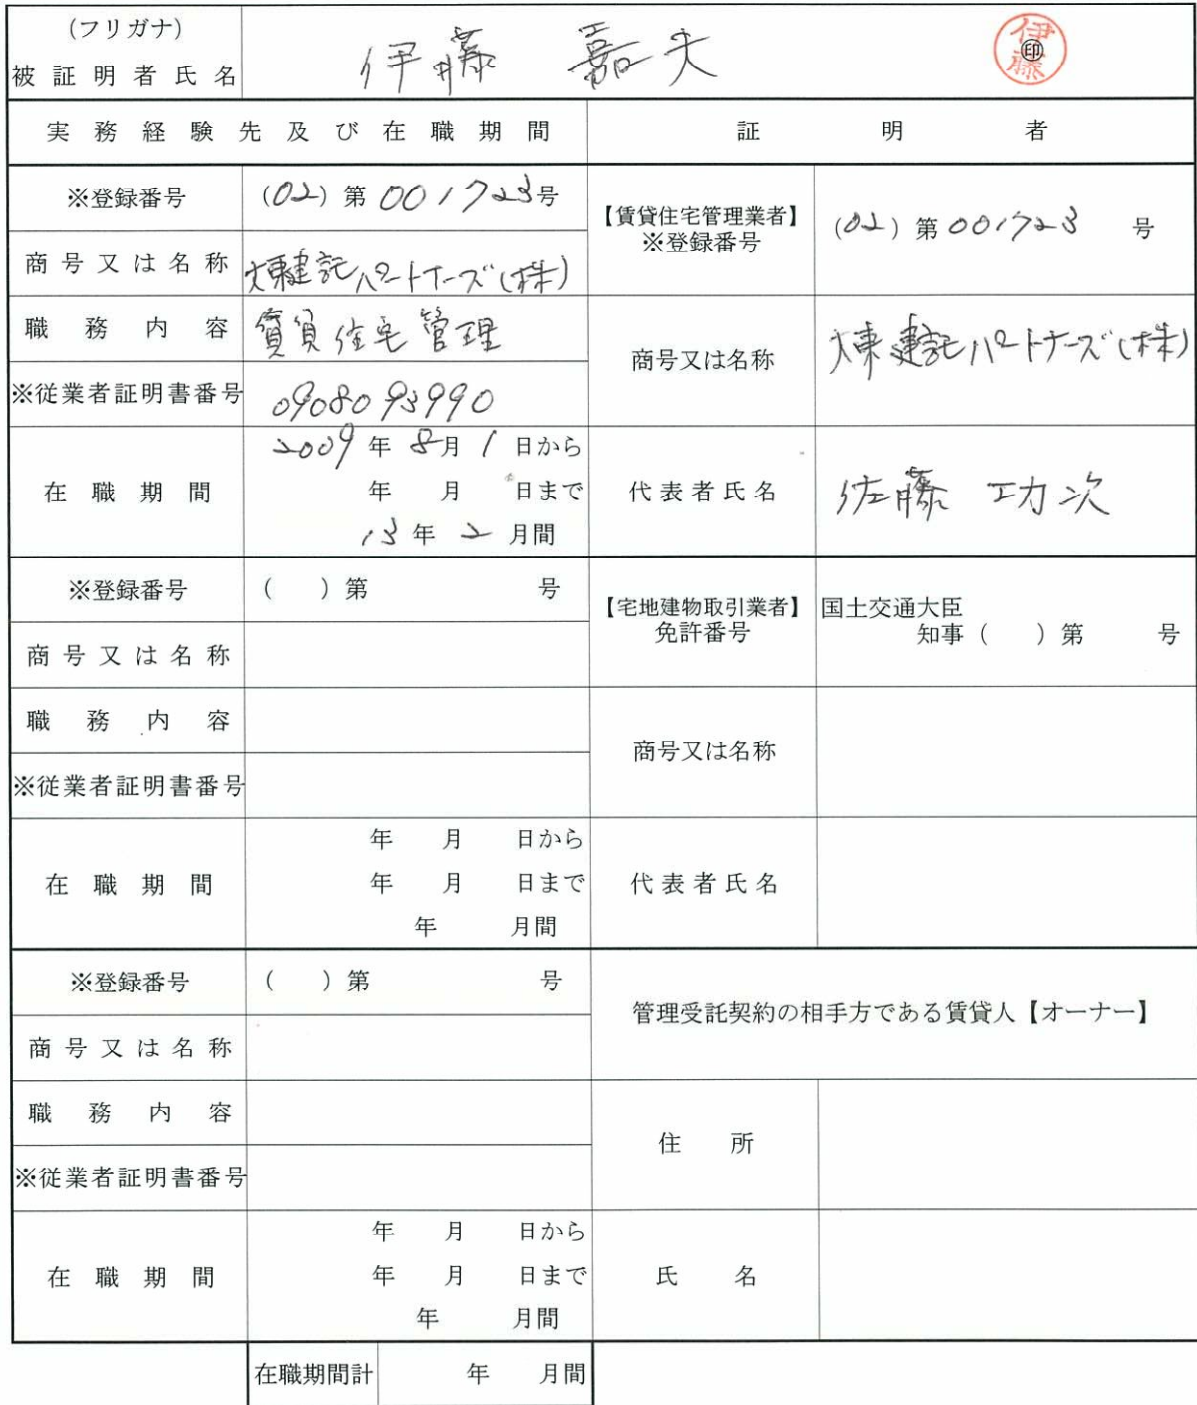 (フリガナ)
被証明者氏名 伊藤 嘉夫 ㊞ 伊藤
実務経験先及び在職期間 証明者
※登録番号 (02) 第 001723号
【賃貸住宅管理業者】
※登録番号 (02) 第 001723 号
商号又は名称 大東建託パートナーズ(株)
職務内容 賃貸住宅管理
商号又は名称 大東建託パートナーズ(株)
※従業者証明書番号 0908093990
在職期間 2009年 8月 1日から
年 月 日まで
13年 2月間
代表者氏名 佐藤 功次
※登録番号 ( ) 第 号
【宅地建物取引業者】
免許番号
国土交通大臣
知事 ( ) 第 号
商号又は名称
職務内容
商号又は名称
※従業者証明書番号
在職期間 年 月 日から
年 月 日まで
年 月間
代表者氏名
※登録番号 ( ) 第 号
管理受託契約の相手方である賃貸人【オーナー】
商号又は名称
職務内容
住所
※従業者証明書番号
在職期間 年 月 日から
年 月 日まで
年 月間
氏名
在職期間計 年 月間